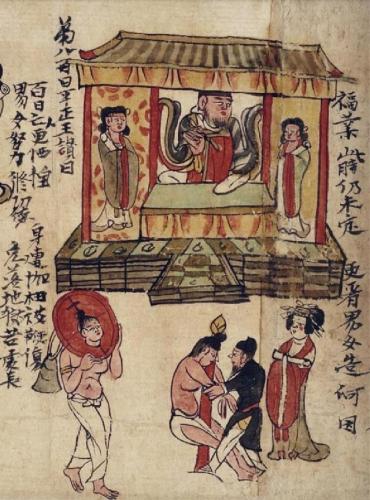 福業此時仍未定 更看男女造何因
第八百日平正王讚曰
百日亡人更恓惶 身遭枷杻被鞭傷
男女努力修 落地獄苦處長